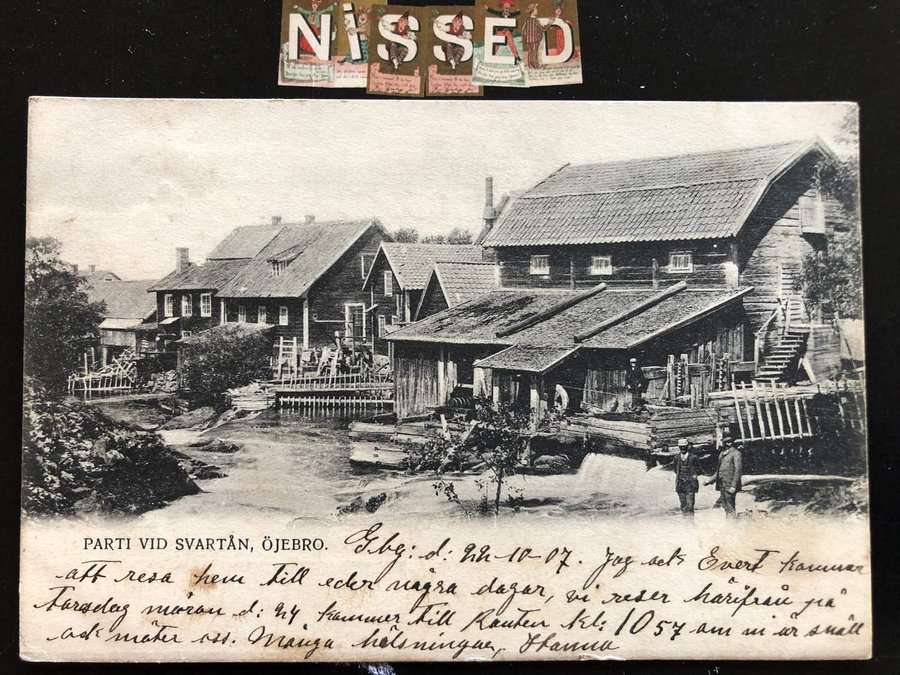 NiSSED
PARTI VID SVARTÅN, ÖJEBRO. Gbg: d: 22-10-07. Jag och Evert kommer
att resa hem till eder några dagar, vi reser härifrån på
Torsdag moron d: 24 kommer till Ranten kl: 10 57 om ni är snäll
och möter oss. Många helsningar, Hanna